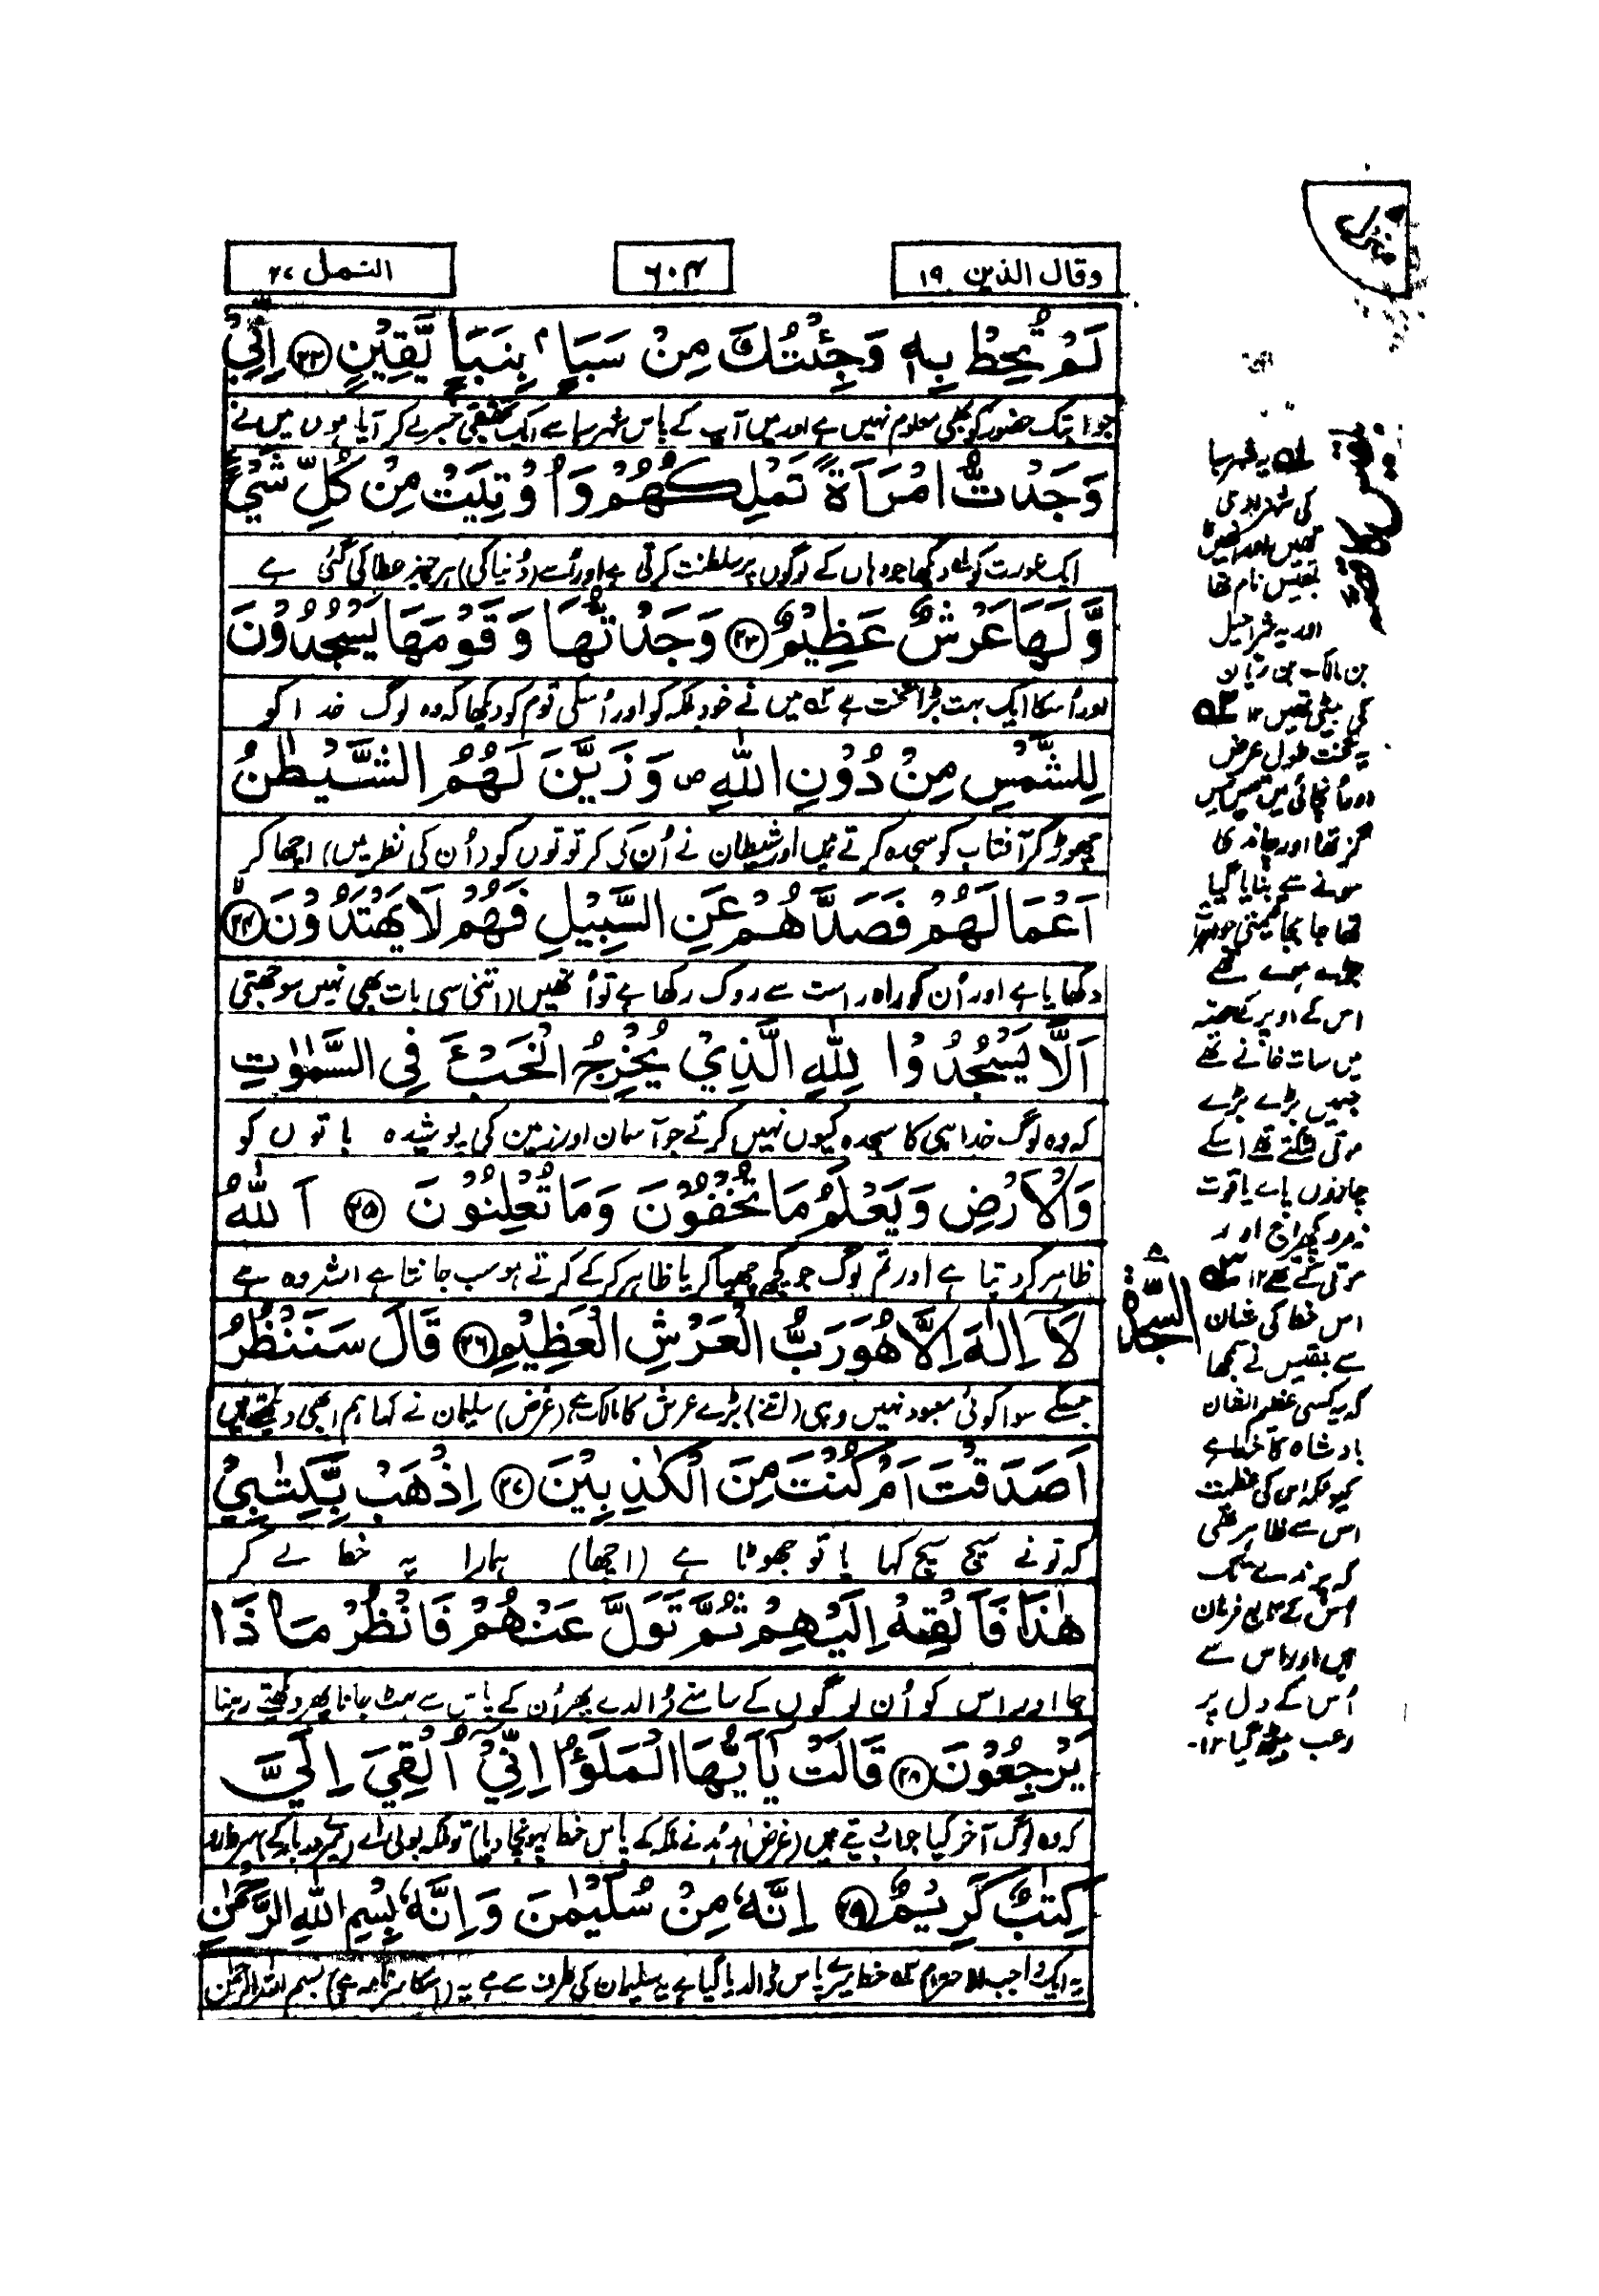 وقال الذين ۱۹
۶۰۴
النمل ۲۷
منزل
لَمْ تُحِطْ بِهٖ وَجِئْتُكَ مِنْ سَبَاٍۭ بِنَبَاٍ يَّقِيْنٍ ۝۲۲ اِنِّيْ
جو ابتک حضور کو بھی معلوم نہیں ہے اور میں آپ کے پاس شہر سبا سے ایک تحقیقی خبر لے کر آیا ہوں میں نے
وَجَدْتُّ امْرَاَةً تَمْلِكُهُمْ وَاُوْتِيَتْ مِنْ كُلِّ شَيْءٍ
ایک عورت کو ؎۱ دیکھا جو وہاں کے لوگوں پر سلطنت کرتی ہے اور اُسے (دُنیا کی) ہر چیز عطا کی گئی ہے
وَّلَهَا عَرْشٌ عَظِيْمٌ ۝۲۳ وَجَدْتُّهَا وَقَوْمَهَا يَسْجُدُوْنَ
اور اُسکا ایک بہت بڑا تخت ہے ؎۲ میں نے خود ملکہ کو اور اُسکی قوم کو دیکھا کہ وہ لوگ خدا کو
لِلشَّمْسِ مِنْ دُوْنِ اللّٰهِ ص وَزَيَّنَ لَهُمُ الشَّيْطٰنُ
چھوڑ کر آفتاب کو سجدہ کرتے ہیں اور شیطان نے اُن کی کرتوتوں کو (اُن کی نظر میں) اچھا کر
اَعْمَالَهُمْ فَصَدَّهُمْ عَنِ السَّبِيْلِ فَهُمْ لَا يَهْتَدُوْنَ ۝۲۴
دکھایا ہے اور اُن کو راہ راست سے روک رکھا ہے تو اُنھیں (اتنی سی بات بھی نہیں سوجھتی
اَلَّا يَسْجُدُوْا لِلّٰهِ الَّذِيْ يُخْرِجُ الْخَبْءَ فِي السَّمٰوٰتِ
کہ وہ لوگ خدا ہی کا سجدہ کیوں نہیں کرتے جو آسمان اور زمین کی پوشیدہ باتوں کو
وَالْاَرْضِ وَيَعْلَمُ مَا تُخْفُوْنَ وَمَا تُعْلِنُوْنَ ۝۲۵ اَللّٰهُ
ظاہر کر دیتا ہے اور تم لوگ جو کچھ چھپا کر یا ظاہر کر کے کرتے ہو سب جانتا ہے اللہ وہ ہے
لَآ اِلٰهَ اِلَّا هُوَ رَبُّ الْعَرْشِ الْعَظِيْمِ ۝۲۶ قَالَ سَنَنْظُرُ
السجدۃ
جسکے سوا کوئی معبود نہیں وہی (اتنے) بڑے عرش کا مالک ہے (غرض) سلیمان نے کہا ہم ابھی دیکھتے ہیں
اَصَدَقْتَ اَمْ كُنْتَ مِنَ الْكٰذِبِيْنَ ۝۲۷ اِذْهَبْ بِّكِتٰبِيْ
کہ تو نے سچ سچ کہا یا تو جھوٹا ہے (اچھا) ہمارا یہ خط لے کر
هٰذَا فَاَلْقِهْ اِلَيْهِمْ ثُمَّ تَوَلَّ عَنْهُمْ فَانْظُرْ مَاذَا
جا اور اس کو اُن لوگوں کے سامنے ڈالدے پھر اُن کے پاس سے ہٹ جانا پھر دیکھتے رہنا
يَرْجِعُوْنَ ۝۲۸ قَالَتْ يٰٓاَيُّهَا الْمَلَؤُا اِنِّيْٓ اُلْقِيَ اِلَيَّ
کہ وہ لوگ آخر کیا جواب دیتے ہیں (غرض ہُدہُد نے ملکہ کے پاس خط پہونچا دیا) تو ملکہ بولی اے (میرے دربار کے) سردارو
كِتٰبٌ كَرِيْمٌ ۝۲۹ اِنَّهٗ مِنْ سُلَيْمٰنَ وَاِنَّهٗ بِسْمِ اللّٰهِ الرَّحْمٰنِ
یہ ایک واجب الاحترام ؎۳ خط میرے پاس ڈالدیا گیا ہے یہ سلیمان کی طرف سے ہے یہ (اسکا سرنامہ ہے) بسم اللہ الرحمٰن
؎۱ یہ شہر سبا
کی شہزادی
تھیں اور انھیں
بلقیس نام تھا
اور یہ شراحیل
بن مالک بن ریان
کی بیٹی تھیں ۱۲ ؎۲
یہ تخت طول عرض
اور اُنچائی میں تیس تیس
گز تھا اور چاندی
سونے سے بنایا گیا
تھا جا بجا قیمتی جواہر
جڑے ہوے تھے
اس کے اوپر کے حصّہ
میں سات خانے تھے
جنمیں بڑے بڑے
موتی لٹکتے تھے اسکے
چاروں پاے یاقوت
زمرد پکھراج اور
موتی کے تھے ۱۲ ؎۳
اس خط کی شان
سے بلقیس نے سمجھا
کہ یہ کسی عظیم الشان
بادشاہ کا خط ہے
کیونکہ اس کی عظمت
اس سے ظاہر تھی
کہ پرندے تک
اُس کے تابع فرمان
ہیں اور اس سے
اُس کے دل پر
رعب بیٹھ گیا ۱۲-